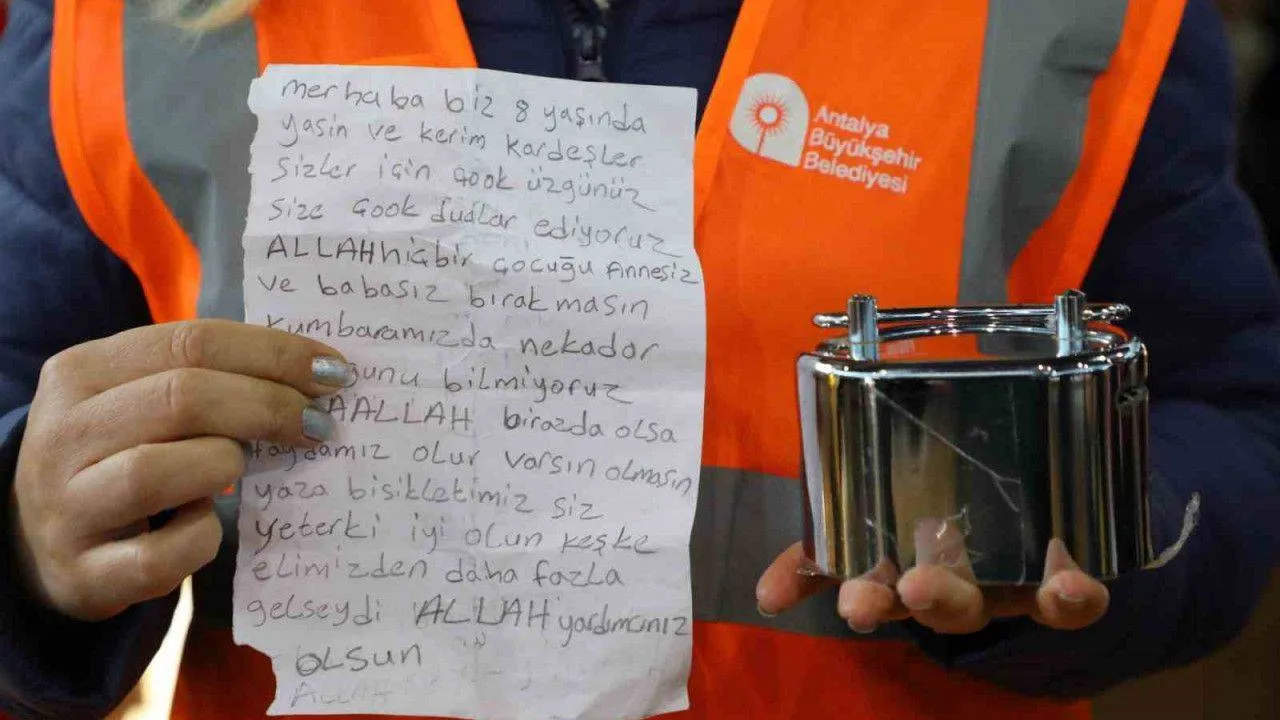 merhaba biz 8 yaşında
yasin ve kerim kardeşler
sizler için çook üzgünüz
size çook dudlar ediyoruz
ALLAH hiçbir çocuğu Annesiz
ve babasız bırakmasın
kumbaramızda nekador
bilmiyoruz
AALLAH birazda olsa
faydamız olur varsın olmasın
yaza bisikletimiz siz
yeterki iyi olun keşke
elimizden daha fazla
gelseydi ALLAH yardımcınız
OLSUN
Antalya
Büyükşehir
Belediyesi